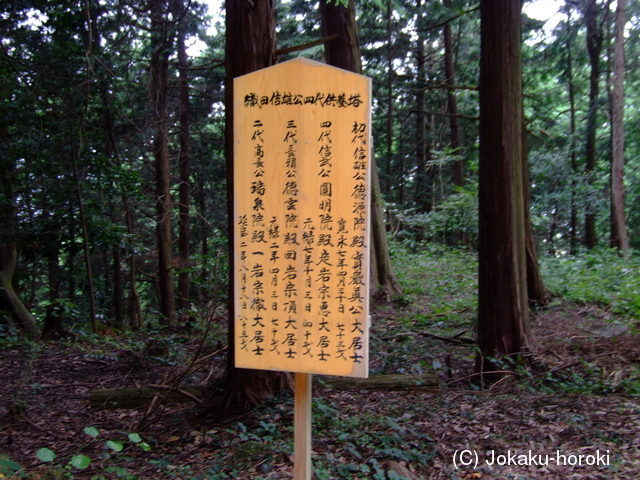 織田信雄公四代供墓塔
初代信雄公德源院殿實巌眞公大居士
寛永七年四月三十日 七十三才
四代信武公圓明院殿 岩宗 大居士
元禄七年十月三日 四十才
三代長頼公德雲院殿回岩宗頂大居士
元禄二年四月三日 七十才
二代高長公瑞泉院殿一岩宗徹大居士
延宝二年八月十八日 八十五才
(C) Jokaku-horidasi.